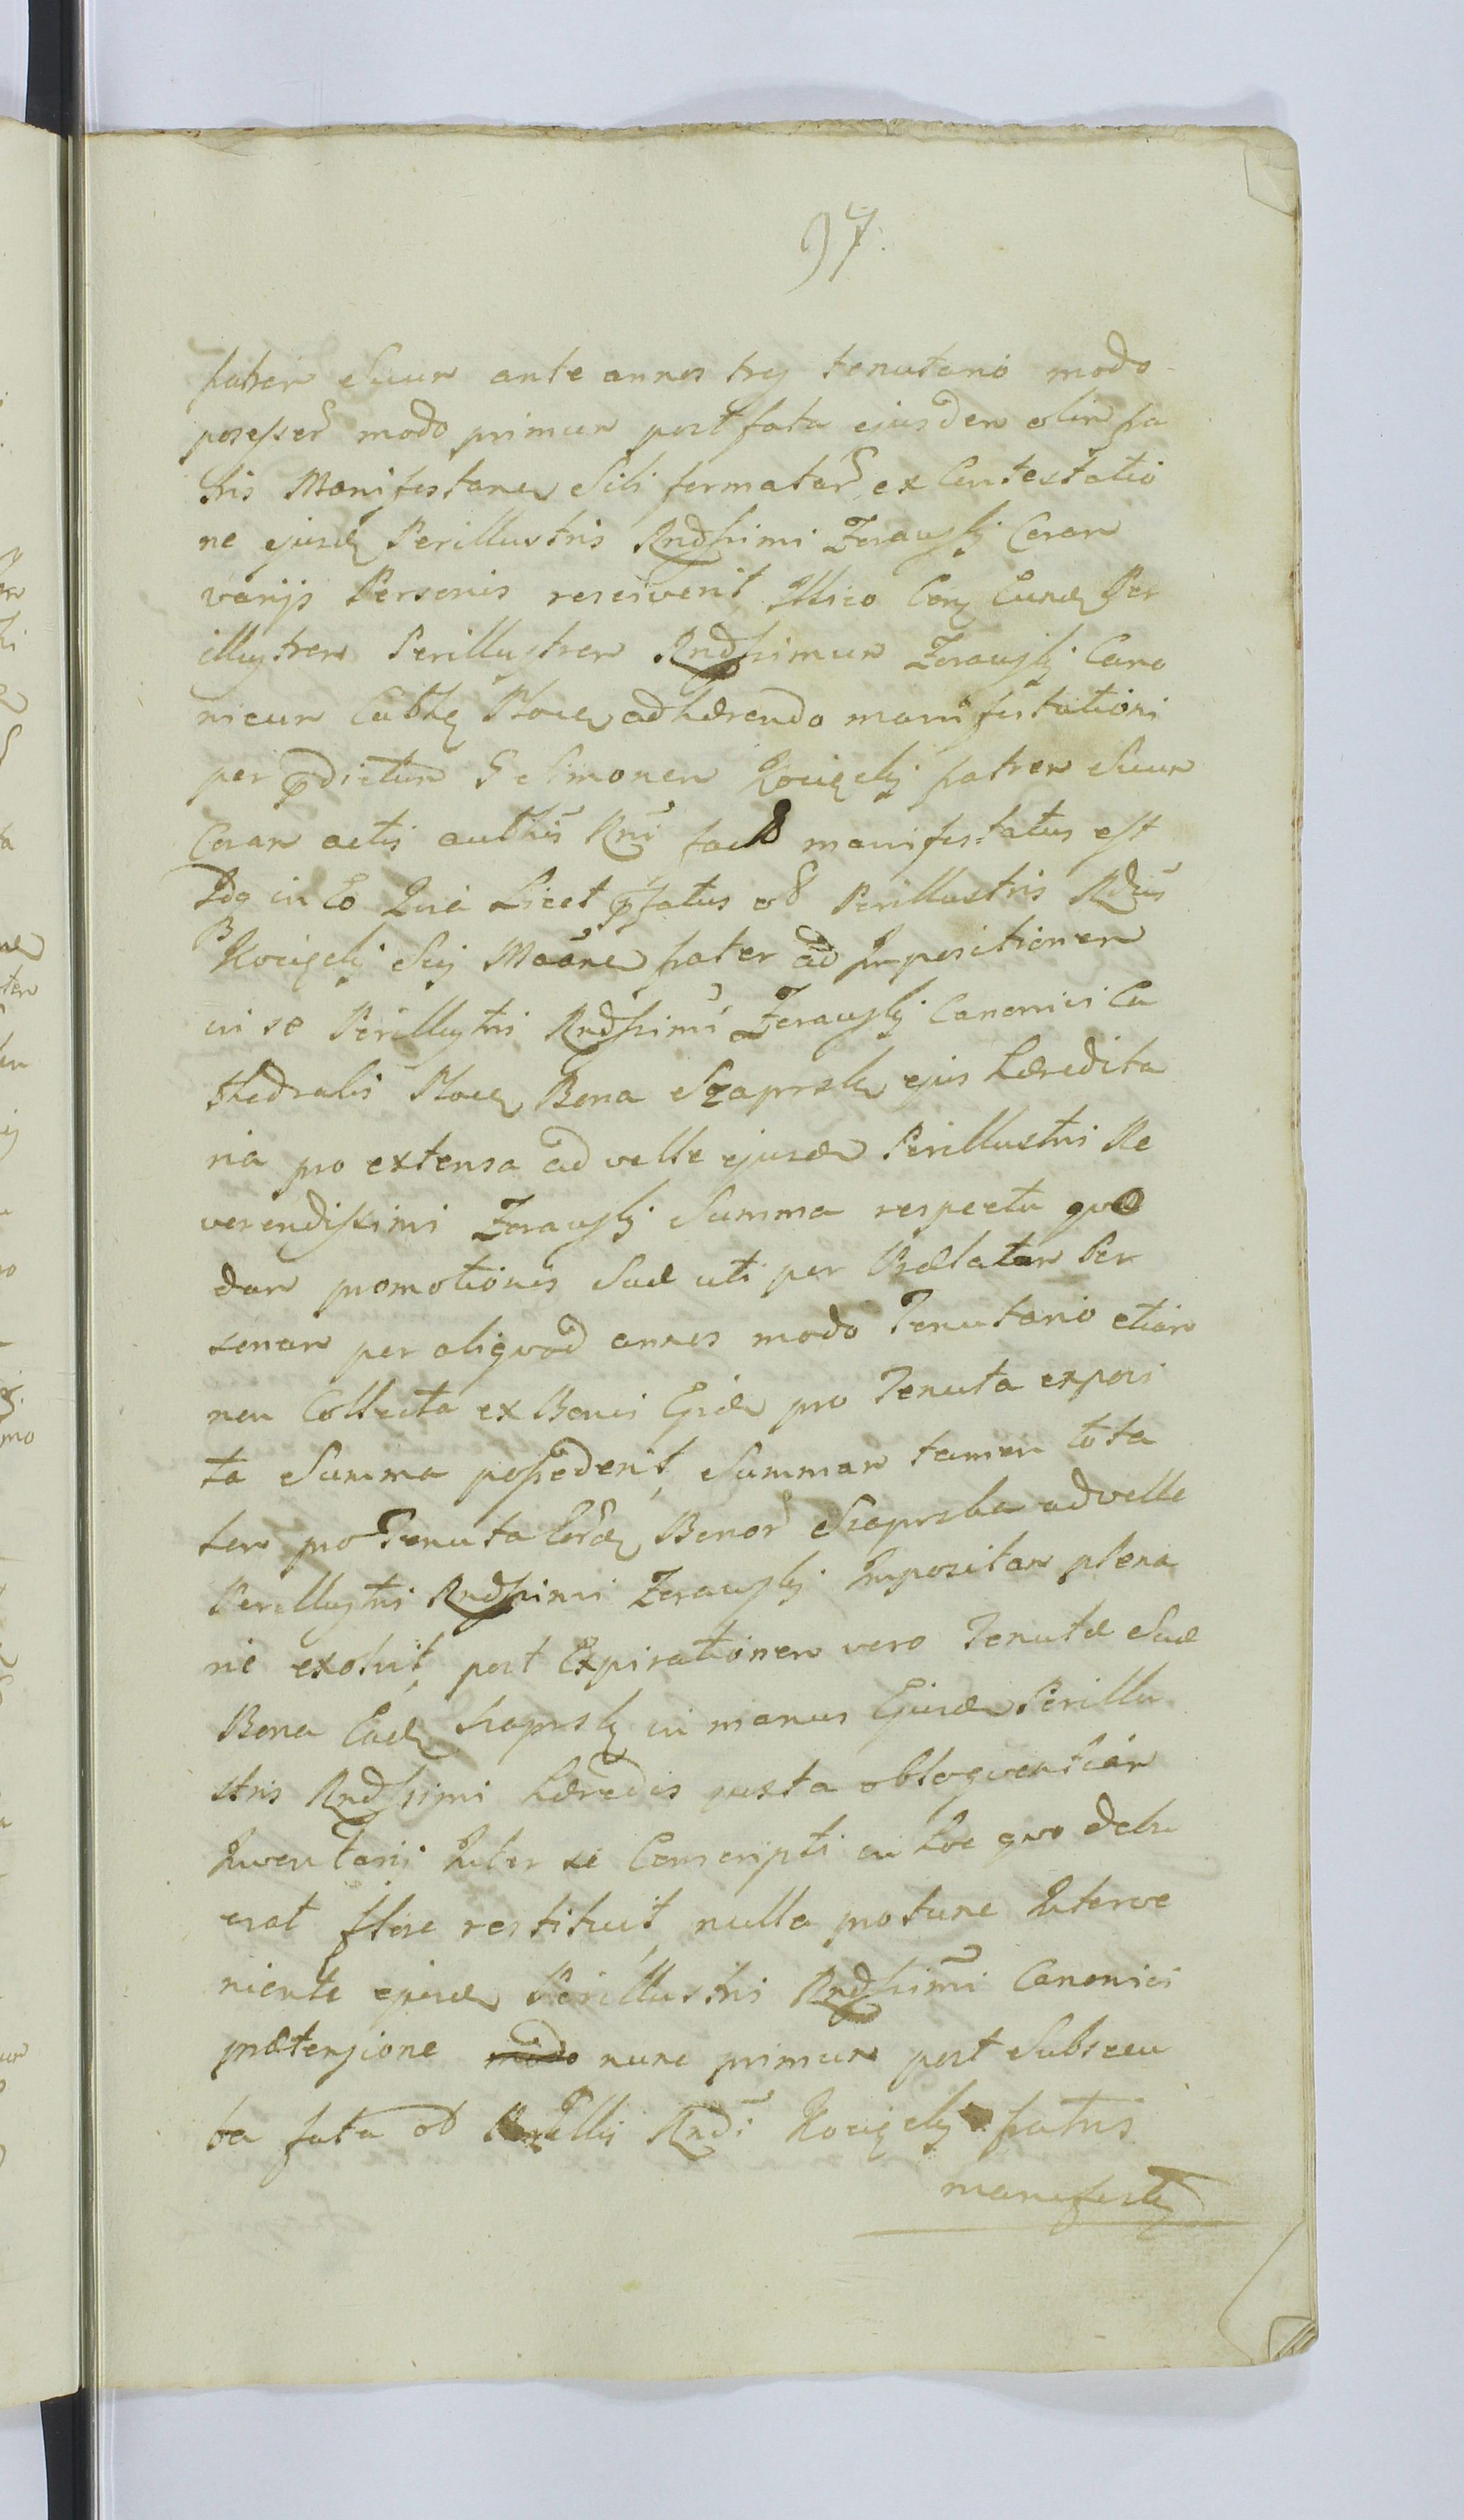 97.
fratrem Suum ante annos trej tenutario modo
posesser modo primum post fata ejusdem olim fra
tris Manifestanej Sibi formatar ex Contestatio
ne ejusd Perillustris Rndssimi Zorawski Coram
varijs Personis resciverit Illico Con Eund Per
illustrem Perillustrem Rndssimum Zorawski Cano
nicum Cathe Ploce adhærendo manifestationi
per pdictum G Simonem Kocięcki fratrem Suum
Coram actis authis Rni facto manifestatus est
Idq in Eo Quia Licet pfatus ol Perillustris Rdus
Kocięcki Sui Maane frater ad Impositionem
in se Perillustri Rndssimi Zorawski Canonici Ca
thedralis Ploce Bona Szaprsk ejus hæredita
ria pro extensa ad velle ejusd Perillustri Re
verendissimi Zorawski Summa respectu quæ
dam promotionis Suæ uti per Prælatam Per
sonam per aliqvod annos modo Tenutario etiam
non Collecta ex Bonis Eisd pro Tenuta exposi
ta Summa possederit, Summam tamen tota
lem pro Tenuta Eord Bonor Szaprska ad velle
Perillustri Rndssimi Zorawski Impositam plena
rie exolvit, post Expirationem vero Tenutæ Suæ
Bona Ead Szaprsk in manus Ejusd Perillu
stris Rndssimi hæredis juxta obloqventiam
Inventarij Inter se Conscripti in hoc quo debu
erat flore restituit, nulla pro tunc Interve
niente ejusd Perillustri Rndssimi Canonici
prætensione nunc primum post Subsecu
ta fata ol Perillis Rndi Kocięcki fratris
manifest